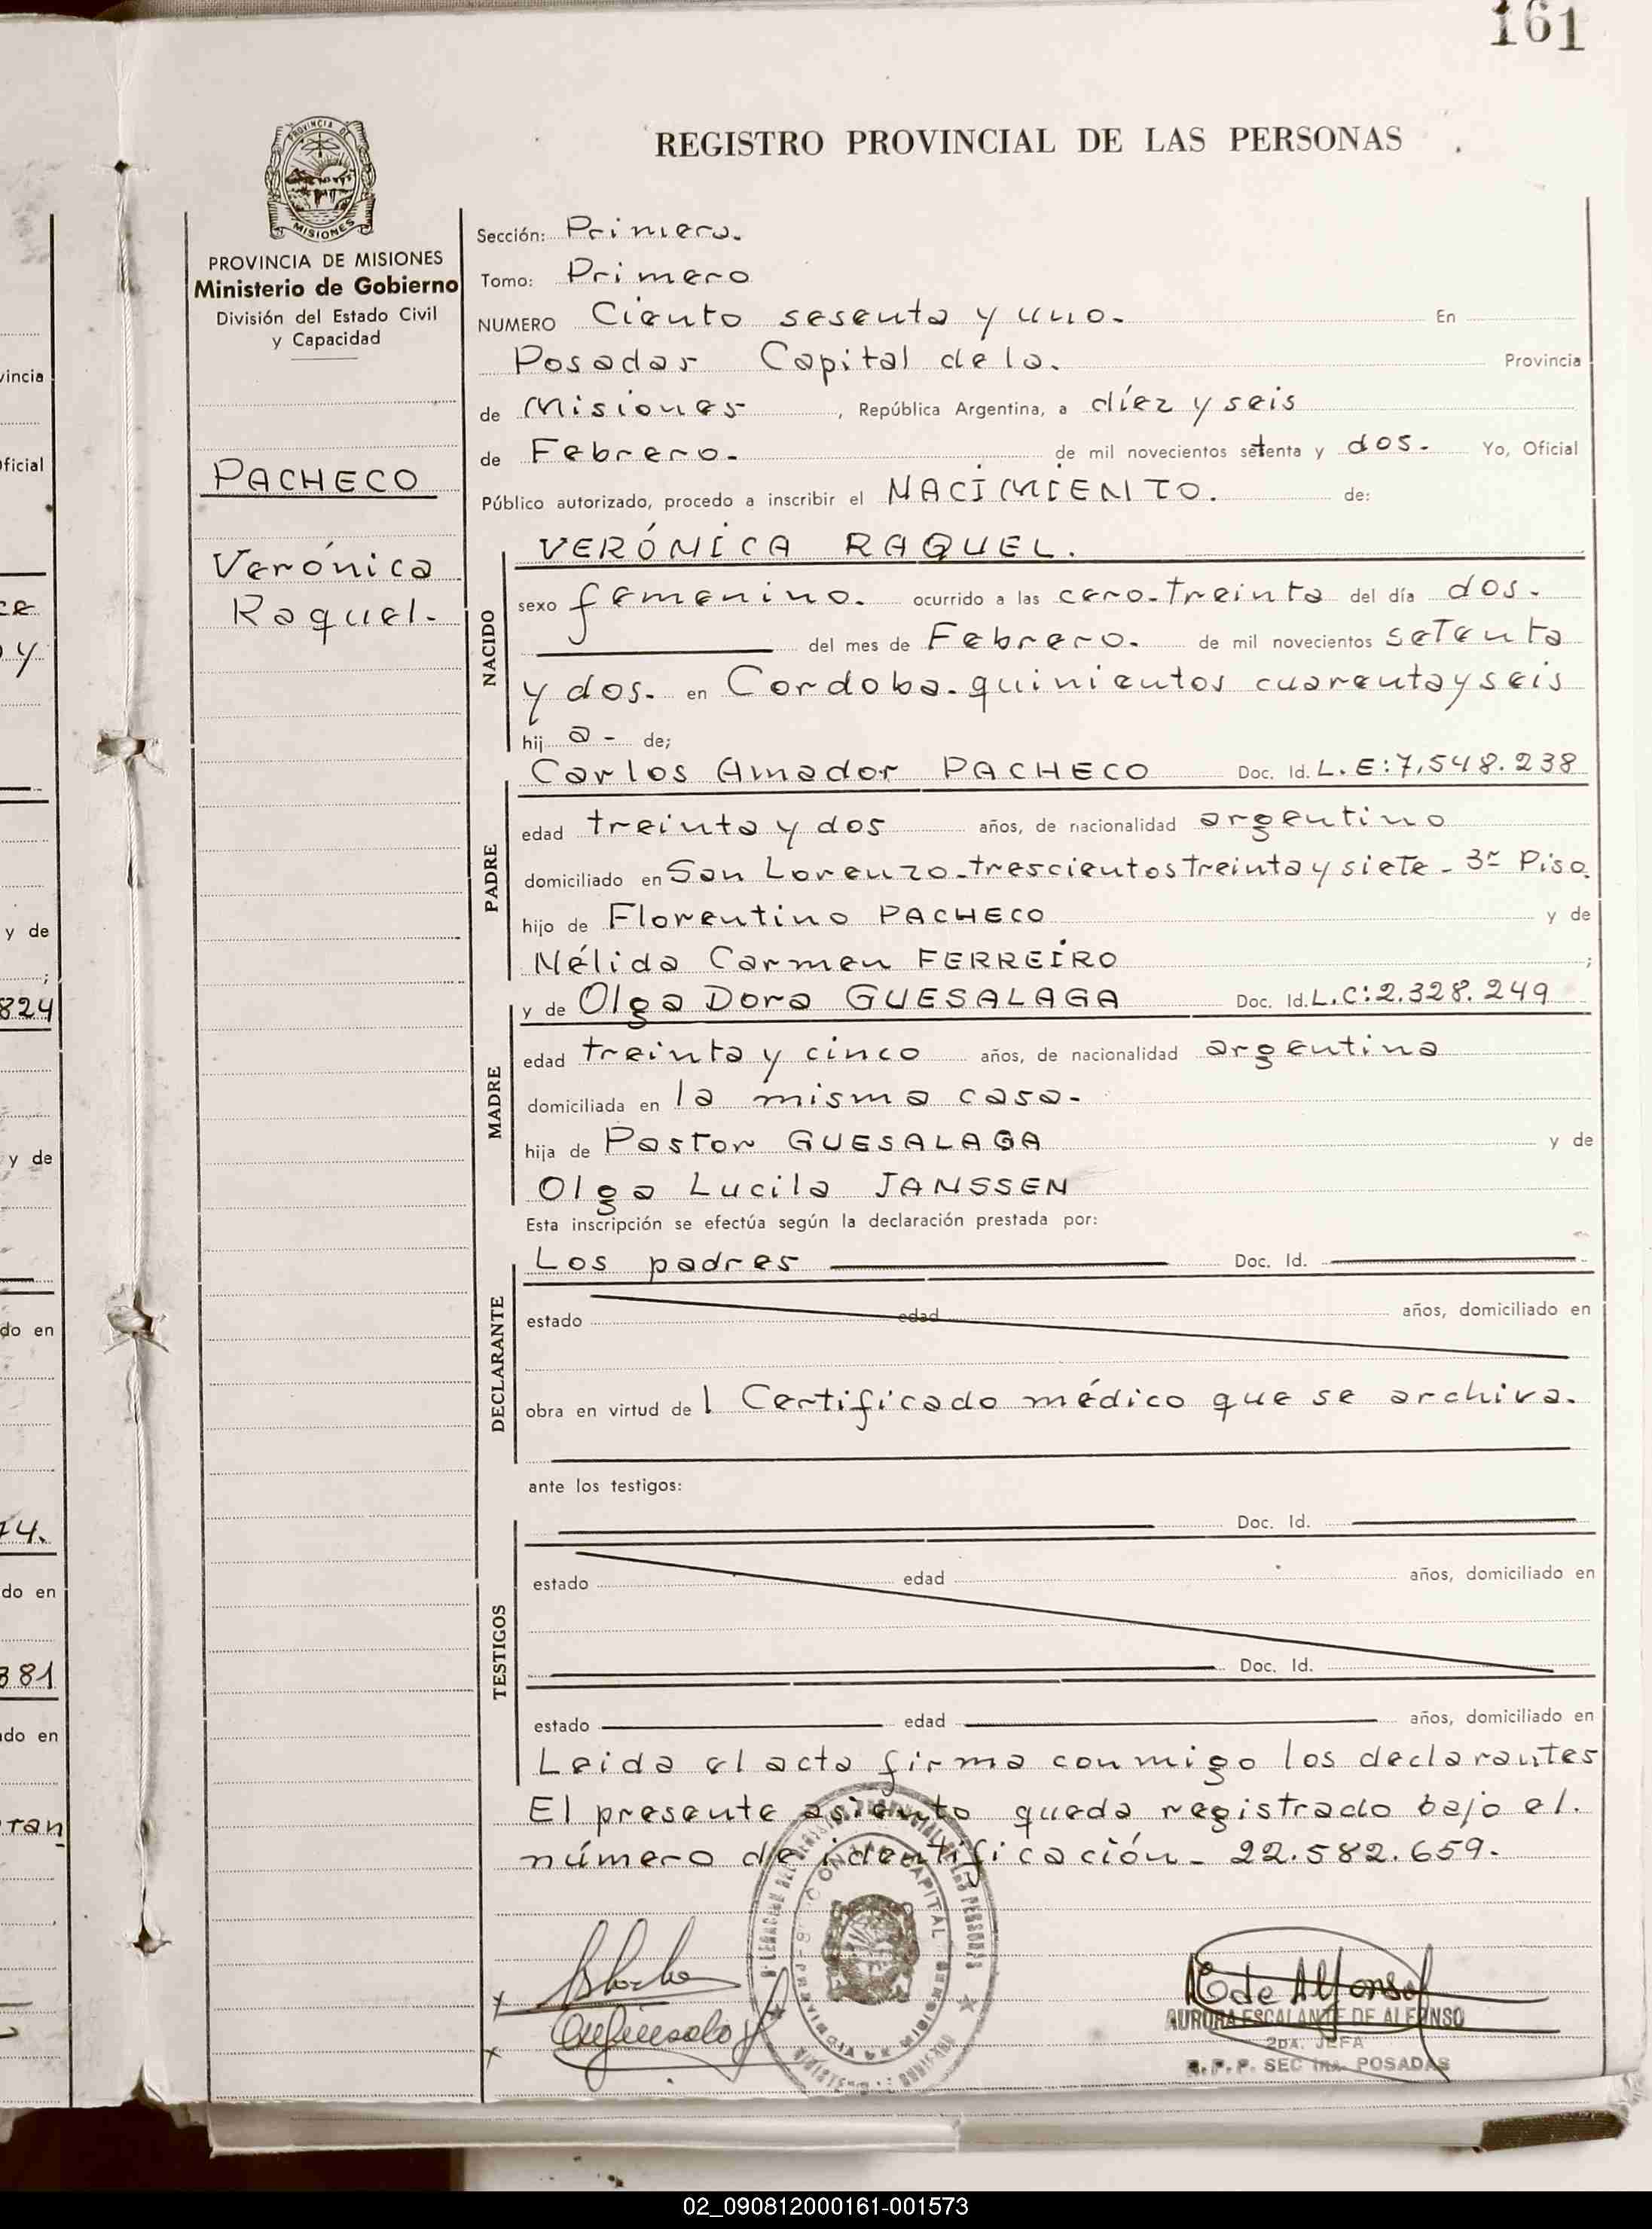 161
REGISTRO PROVINCIAL DE LAS PERSONAS
PROVINCIA DE
MISIONES
PROVINCIA DE MISIONES
Ministerio de Gobierno
División del Estado Civil
y Capacidad
PACHECO
Verónica
Raquel.-
Sección: Primera.
Tomo: Primero
NUMERO Ciento sesenta y uno.- En
Posadas Capital de la. Provincia
de Misiones , República Argentina, a diez y seis
de Febrero.- de mil novecientos setenta y dos.- Yo, Oficial
Público autorizado, procedo a inscribir el NACIMIENTO. de:
NACIDO
VERÓNICA RAQUEL.
sexo femenino. ocurrido a las cero-treinta del día dos.
del mes de Febrero. de mil novecientos setenta
y dos. en Cordoba. quinientos cuarenta y seis
hij a - de;
PADRE
Carlos Amador PACHECO Doc. Id. L.E:7.548.238
edad treinta y dos años, de nacionalidad argentino
domiciliado en San Lorenzo-trescientos treinta y siete - 3er Piso.
hijo de Florentino PACHECO y de
Nélida Carmen FERREIRO ;
MADRE
y de Olga Dora GUESALAGA Doc. Id. L.C:2.328.249
edad treinta y cinco años, de nacionalidad argentina
domiciliada en la misma casa-
hija de Pastor GUESALAGA y de
Olga Lucila JANSSEN
Esta inscripción se efectúa según la declaración prestada por:
DECLARANTE
Los padres Doc. Id.
estado edad años, domiciliado en
obra en virtud de 1 Certificado médico que se archiva.
ante los testigos:
TESTIGOS
Doc. Id.
estado edad años, domiciliado en
Doc. Id.
estado edad años, domiciliado en
Leida el acta firma conmigo los declarantes
El presente asiento queda registrado bajo el.
número de identificación - 22.582.659.
AURORA ESCALANTE DE ALFONSO
2DA. JEFA
R.P.P. SEC 1ra. POSADAS
vincia
Oficial
y de
824
y de
do en
74.
do en
381
do en
tan
02_090812000161-001573